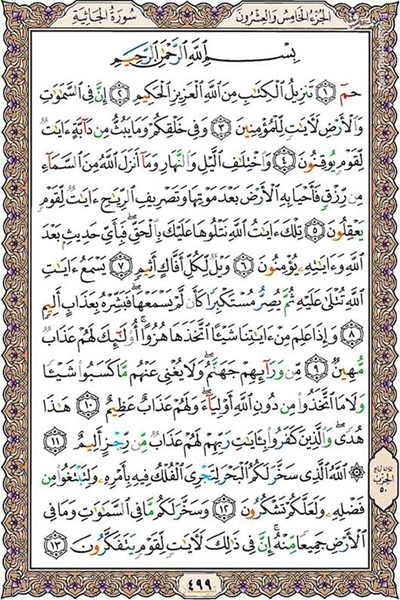 الجزء الخامس والعشرون
سورة الجاثية
بِسْمِ اللَّهِ الرَّحْمَٰنِ الرَّحِيمِ
حمٓ ﴿١﴾ تَنزِيلُ الْكِتَابِ مِنَ اللَّهِ الْعَزِيزِ الْحَكِيمِ ﴿٢﴾ إِنَّ فِي السَّمَاوَاتِ
وَالْأَرْضِ لَآيَاتٍ لِّلْمُؤْمِنِينَ ﴿٣﴾ وَفِي خَلْقِكُمْ وَمَا يَبُثُّ مِن دَابَّةٍ آيَاتٌ
لِّقَوْمٍ يُوقِنُونَ ﴿٤﴾ وَاخْتِلَافِ اللَّيْلِ وَالنَّهَارِ وَمَا أَنزَلَ اللَّهُ مِنَ السَّمَاءِ
مِن رِّزْقٍ فَأَحْيَا بِهِ الْأَرْضَ بَعْدَ مَوْتِهَا وَتَصْرِيفِ الرِّيَاحِ آيَاتٌ لِّقَوْمٍ
يَعْقِلُونَ ﴿٥﴾ تِلْكَ آيَاتُ اللَّهِ نَتْلُوهَا عَلَيْكَ بِالْحَقِّ ۖ فَبِأَيِّ حَدِيثٍ بَعْدَ
اللَّهِ وَآيَاتِهِ يُؤْمِنُونَ ﴿٦﴾ وَيْلٌ لِّكُلِّ أَفَّاكٍ أَثِيمٍ ﴿٧﴾ يَسْمَعُ آيَاتِ
اللَّهِ تُتْلَىٰ عَلَيْهِ ثُمَّ يُصِرُّ مُسْتَكْبِرًا كَأَن لَّمْ يَسْمَعْهَا ۖ فَبَشِّرْهُ بِعَذَابٍ أَلِيمٍ
﴿٨﴾ وَإِذَا عَلِمَ مِنْ آيَاتِنَا شَيْئًا اتَّخَذَهَا هُزُوًا ۚ أُولَٰئِكَ لَهُمْ عَذَابٌ
مُّهِينٌ ﴿٩﴾ مِّن وَرَائِهِمْ جَهَنَّمُ ۖ وَلَا يُغْنِي عَنْهُم مَّا كَسَبُوا شَيْئًا
وَلَا مَا اتَّخَذُوا مِن دُونِ اللَّهِ أَوْلِيَاءَ ۖ وَلَهُمْ عَذَابٌ عَظِيمٌ ﴿١٠﴾ هَٰذَا
هُدًى ۖ وَالَّذِينَ كَفَرُوا بِآيَاتِ رَبِّهِمْ لَهُمْ عَذَابٌ مِّن رِّجْزٍ أَلِيمٌ ﴿١١﴾
۞ اللَّهُ الَّذِي سَخَّرَ لَكُمُ الْبَحْرَ لِتَجْرِيَ الْفُلْكُ فِيهِ بِأَمْرِهِ وَلِتَبْتَغُوا مِن
فَضْلِهِ وَلَعَلَّكُمْ تَشْكُرُونَ ﴿١٢﴾ وَسَخَّرَ لَكُم مَّا فِي السَّمَاوَاتِ وَمَا فِي
الْأَرْضِ جَمِيعًا مِّنْهُ ۚ إِنَّ فِي ذَٰلِكَ لَآيَاتٍ لِّقَوْمٍ يَتَفَكَّرُونَ ﴿١٣﴾
الحزب
٥٠
٤٩٩